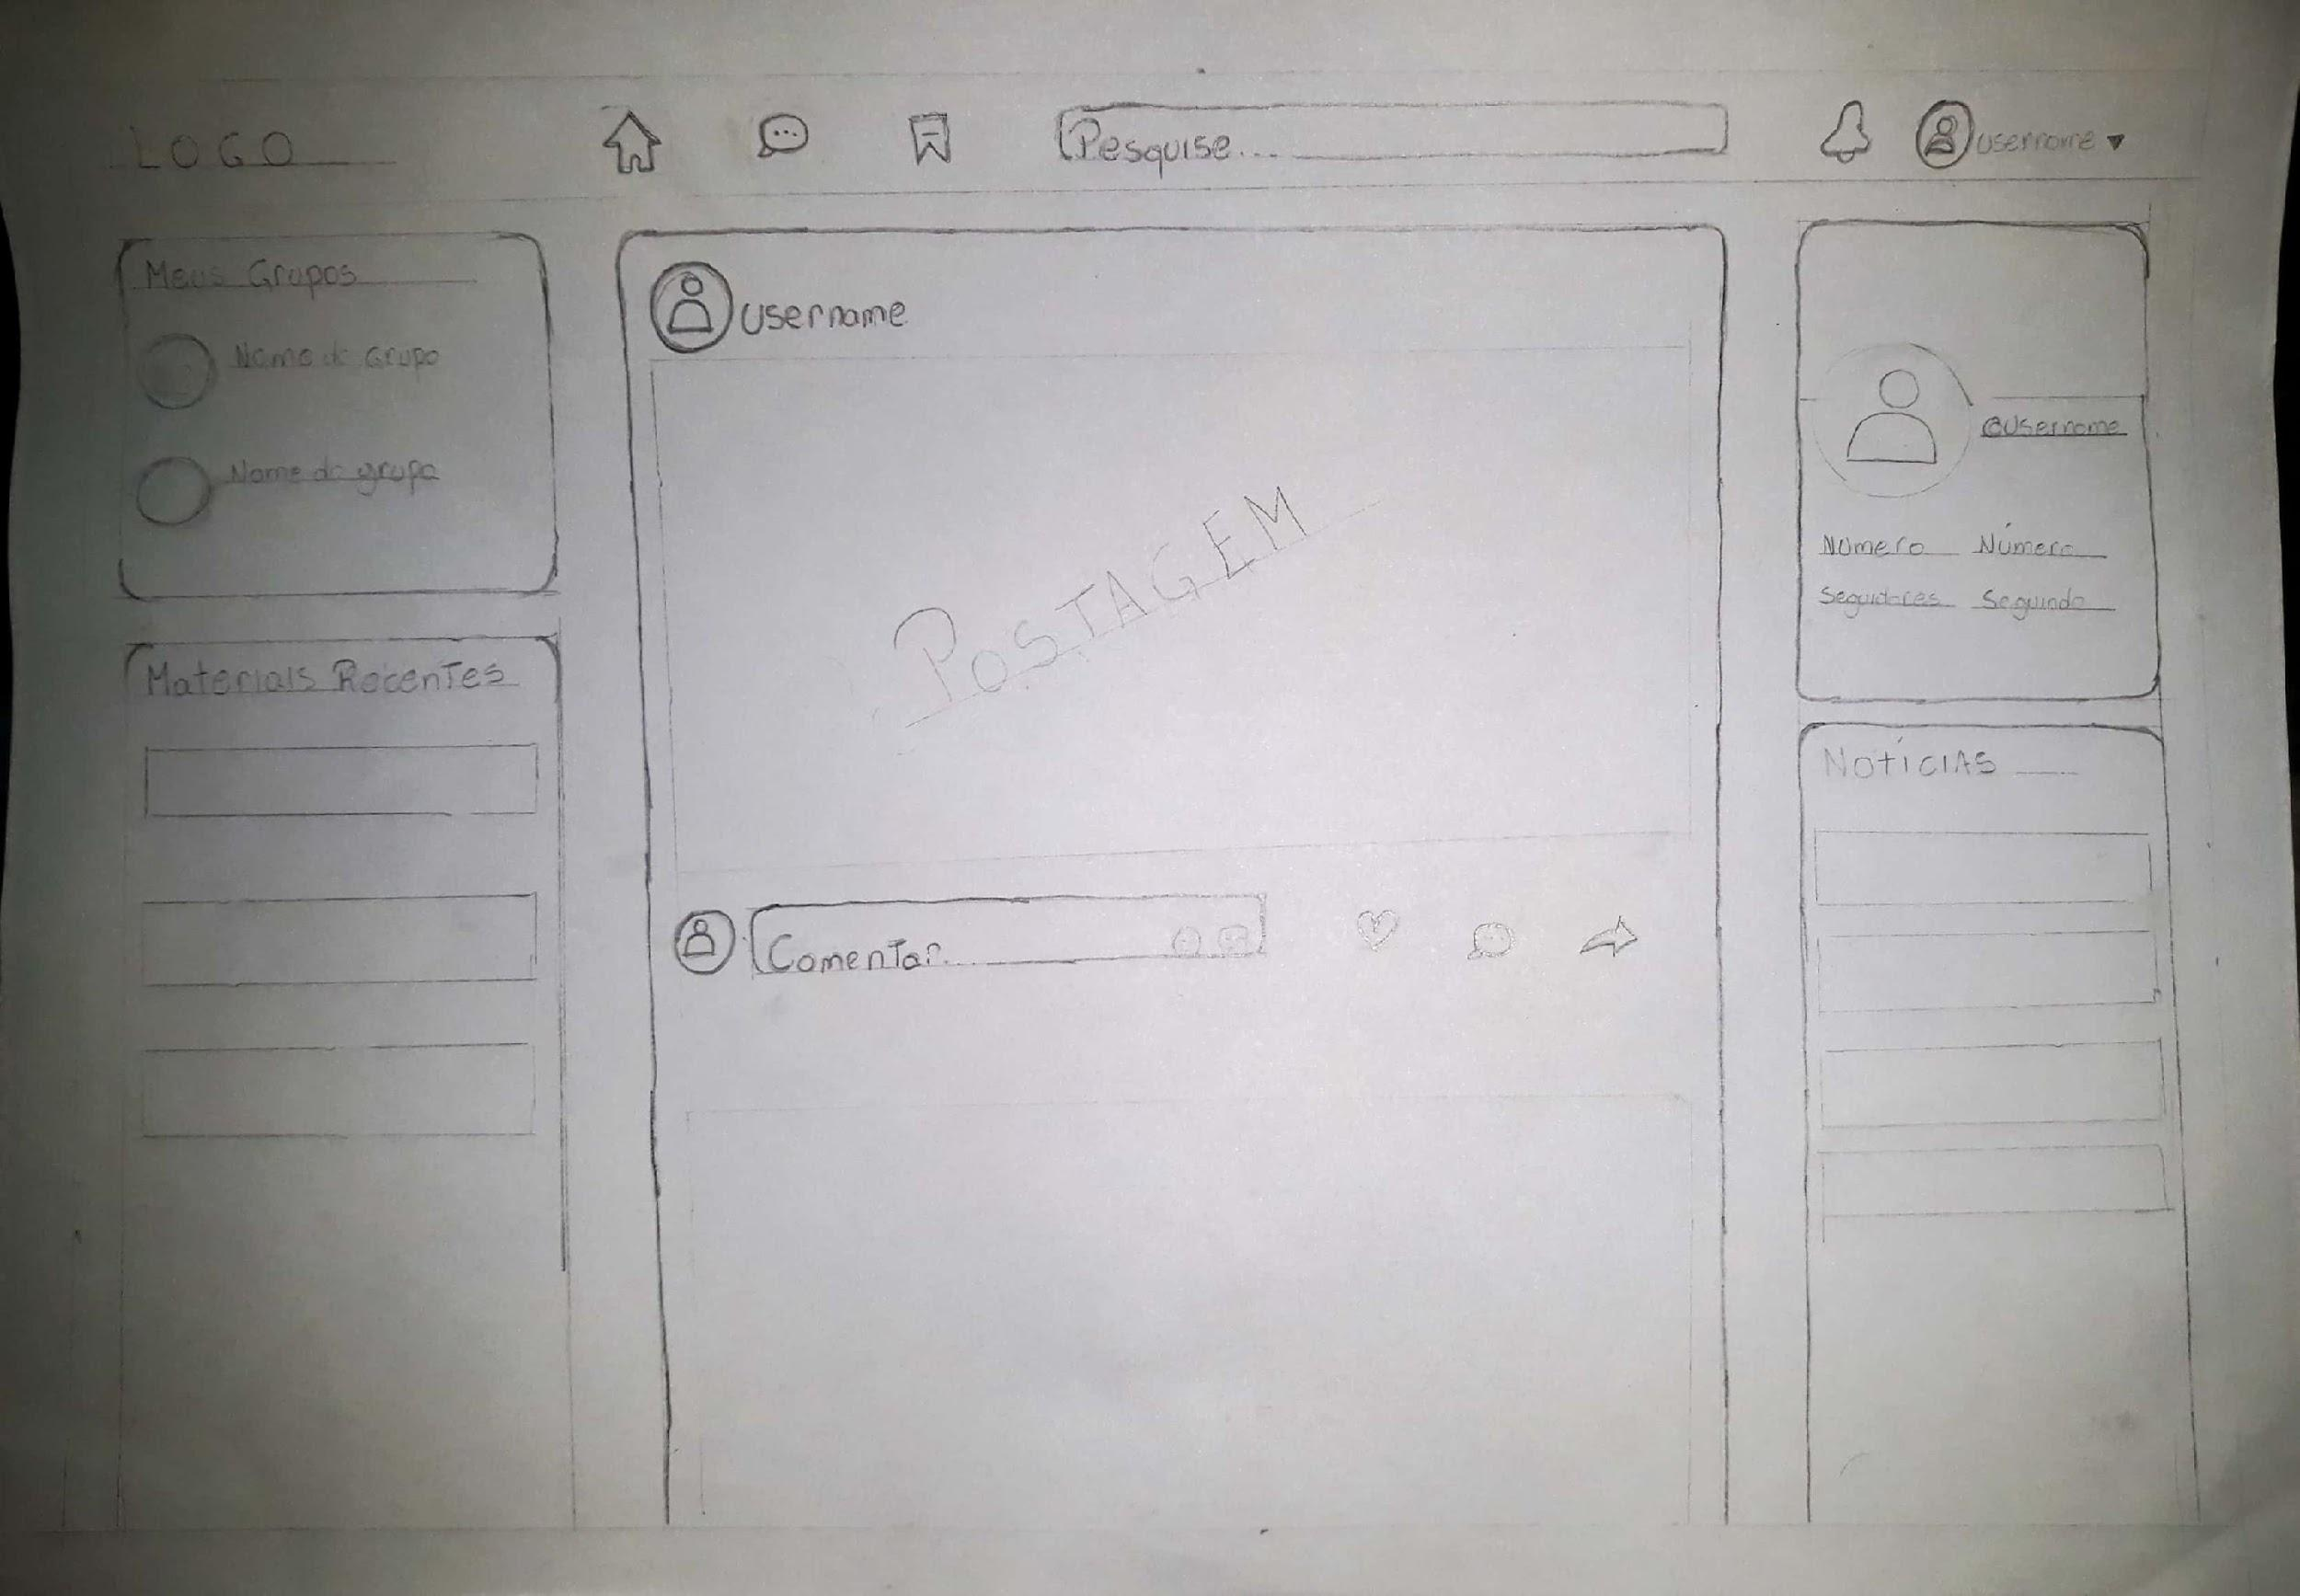 LOGO
Pesquise...
username
Meus Grupos
Nome do Grupo
Nome do grupo
Materiais Recentes
username
POSTAGEM
Comentar...
@Username
Número Número
Seguidores Seguindo
NOTÍCIAS